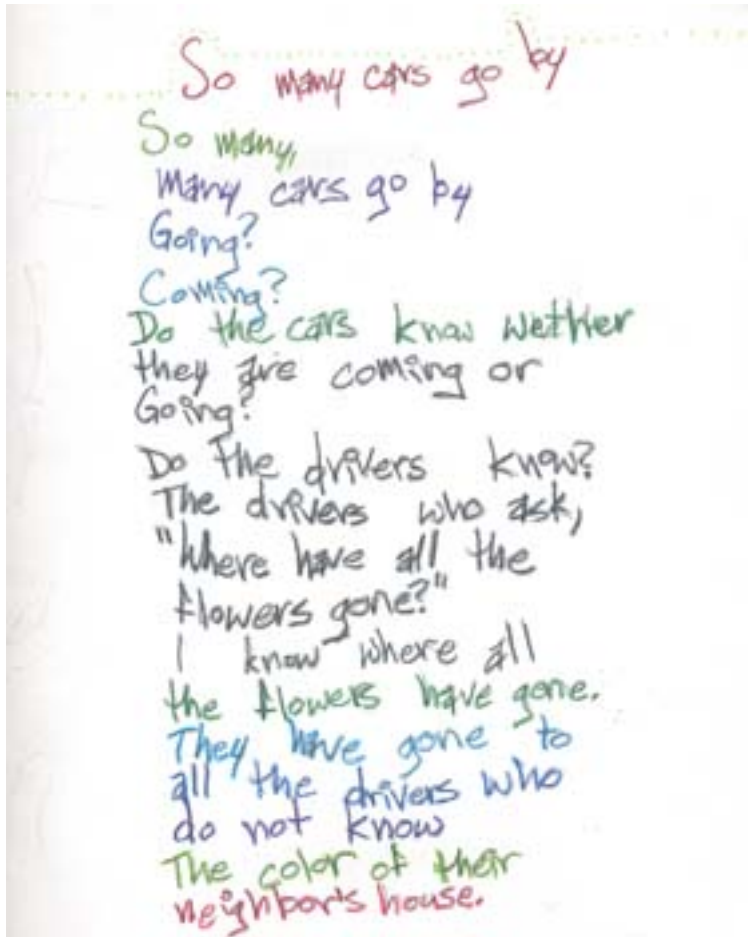 So many cars go by
So many,
Many cars go by
Going?
Coming?
Do the cars know wether
they are coming or
Going?
Do the drivers know?
The drivers who ask,
"Where have all the
flowers gone?"
I know where all
the flowers have gone.
They have gone to
all the drivers who
do not know
The color of their
neighbor's house.